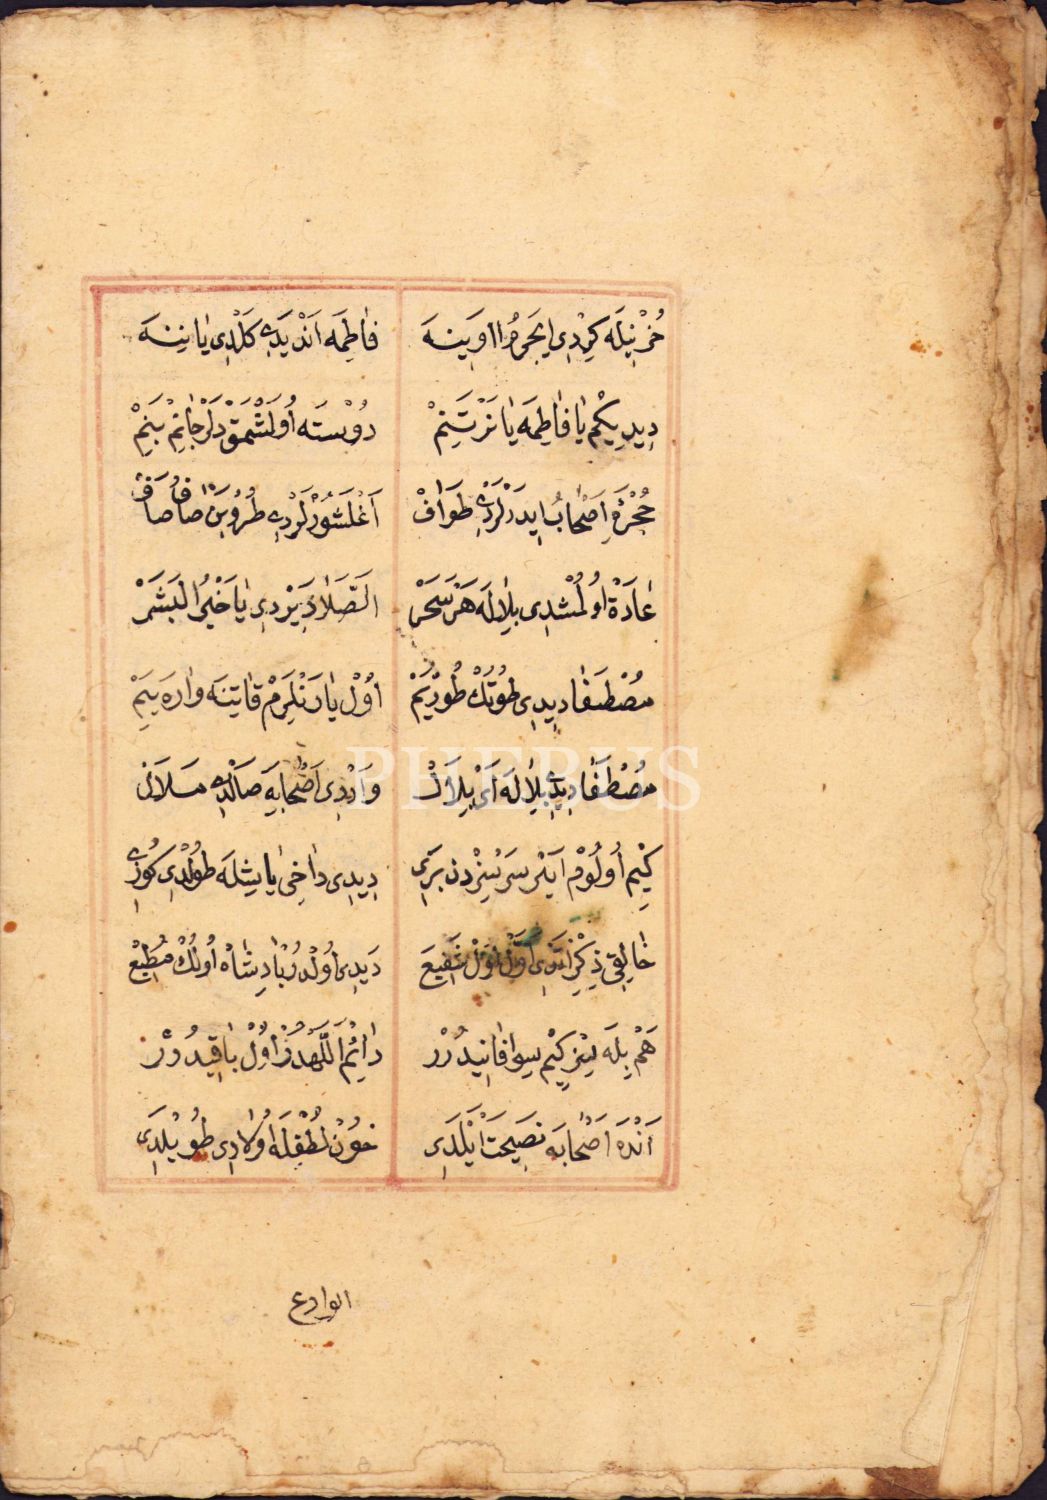 حُزْنِيلَه كِيرْدِى اِيجَرُو اَوِينَهَ فَاطِمَه اَنْدَيَدِى كَلْدِى يَانِينَهَ
دِيدِيكُمْ يَا فَاطِمَه يَا نَزْتَنِمْ دُوسْتَه اُولَشْمَقْ دِلَرْ جَانِمْ بَنِمْ
حُجْرَۀِ اَصْحَابُ اِيدَرْلَرْدِى طَوَافْ اَغْلَشُورْلَرْدِى طُرُوبَنْ صَافُ صَافْ
عَادَةْ اُولْمُشْدِى بِلَالَه هَرْ سَحَرْ اَلصَّلَا دِيَرْدِى يَا خَيْرُ الْبَشَرْ
مُصْطَفَا دِيدِى طُوتُكْ طُورَيِمْ اُولْ يَارَنْلَرِمْ قَاتِينَه وَارَيِمْ
مُصْطَفَا دِيدِى بِلَالَه اَىْ بِلَالْ وَارْدِى اَصْحَابَه صَالْدِى سَلَا
كِيم اُولُوْمْ اَيْرَرْ سِزْدِن بَرِى دِيدِى دَاخِى يَاشِيلَه طُولْدِى كُوزِى
خَالِقِى ذِكْرِ اِتْدِى اَوَّلْ اُولْ شَفِيعَ دَيدِى اُولْدُرْ پَادِشَاهْ اُولُكْ مُطِيعْ
هَمْ بِيلَه سِيزْ كِيْم سِوَا فَانِيدُرْرْ دَائِمْ اَللّٰهْدُرْ اُولْ بَاقِيدُرْرْ
اَنْدَه اَصْحَابَه نَصِيحَتْ اَيْلَدِى خُونْ لُطْفِلَه اُولَادِى طُويْلَدِى
الوادع
PHEBUS